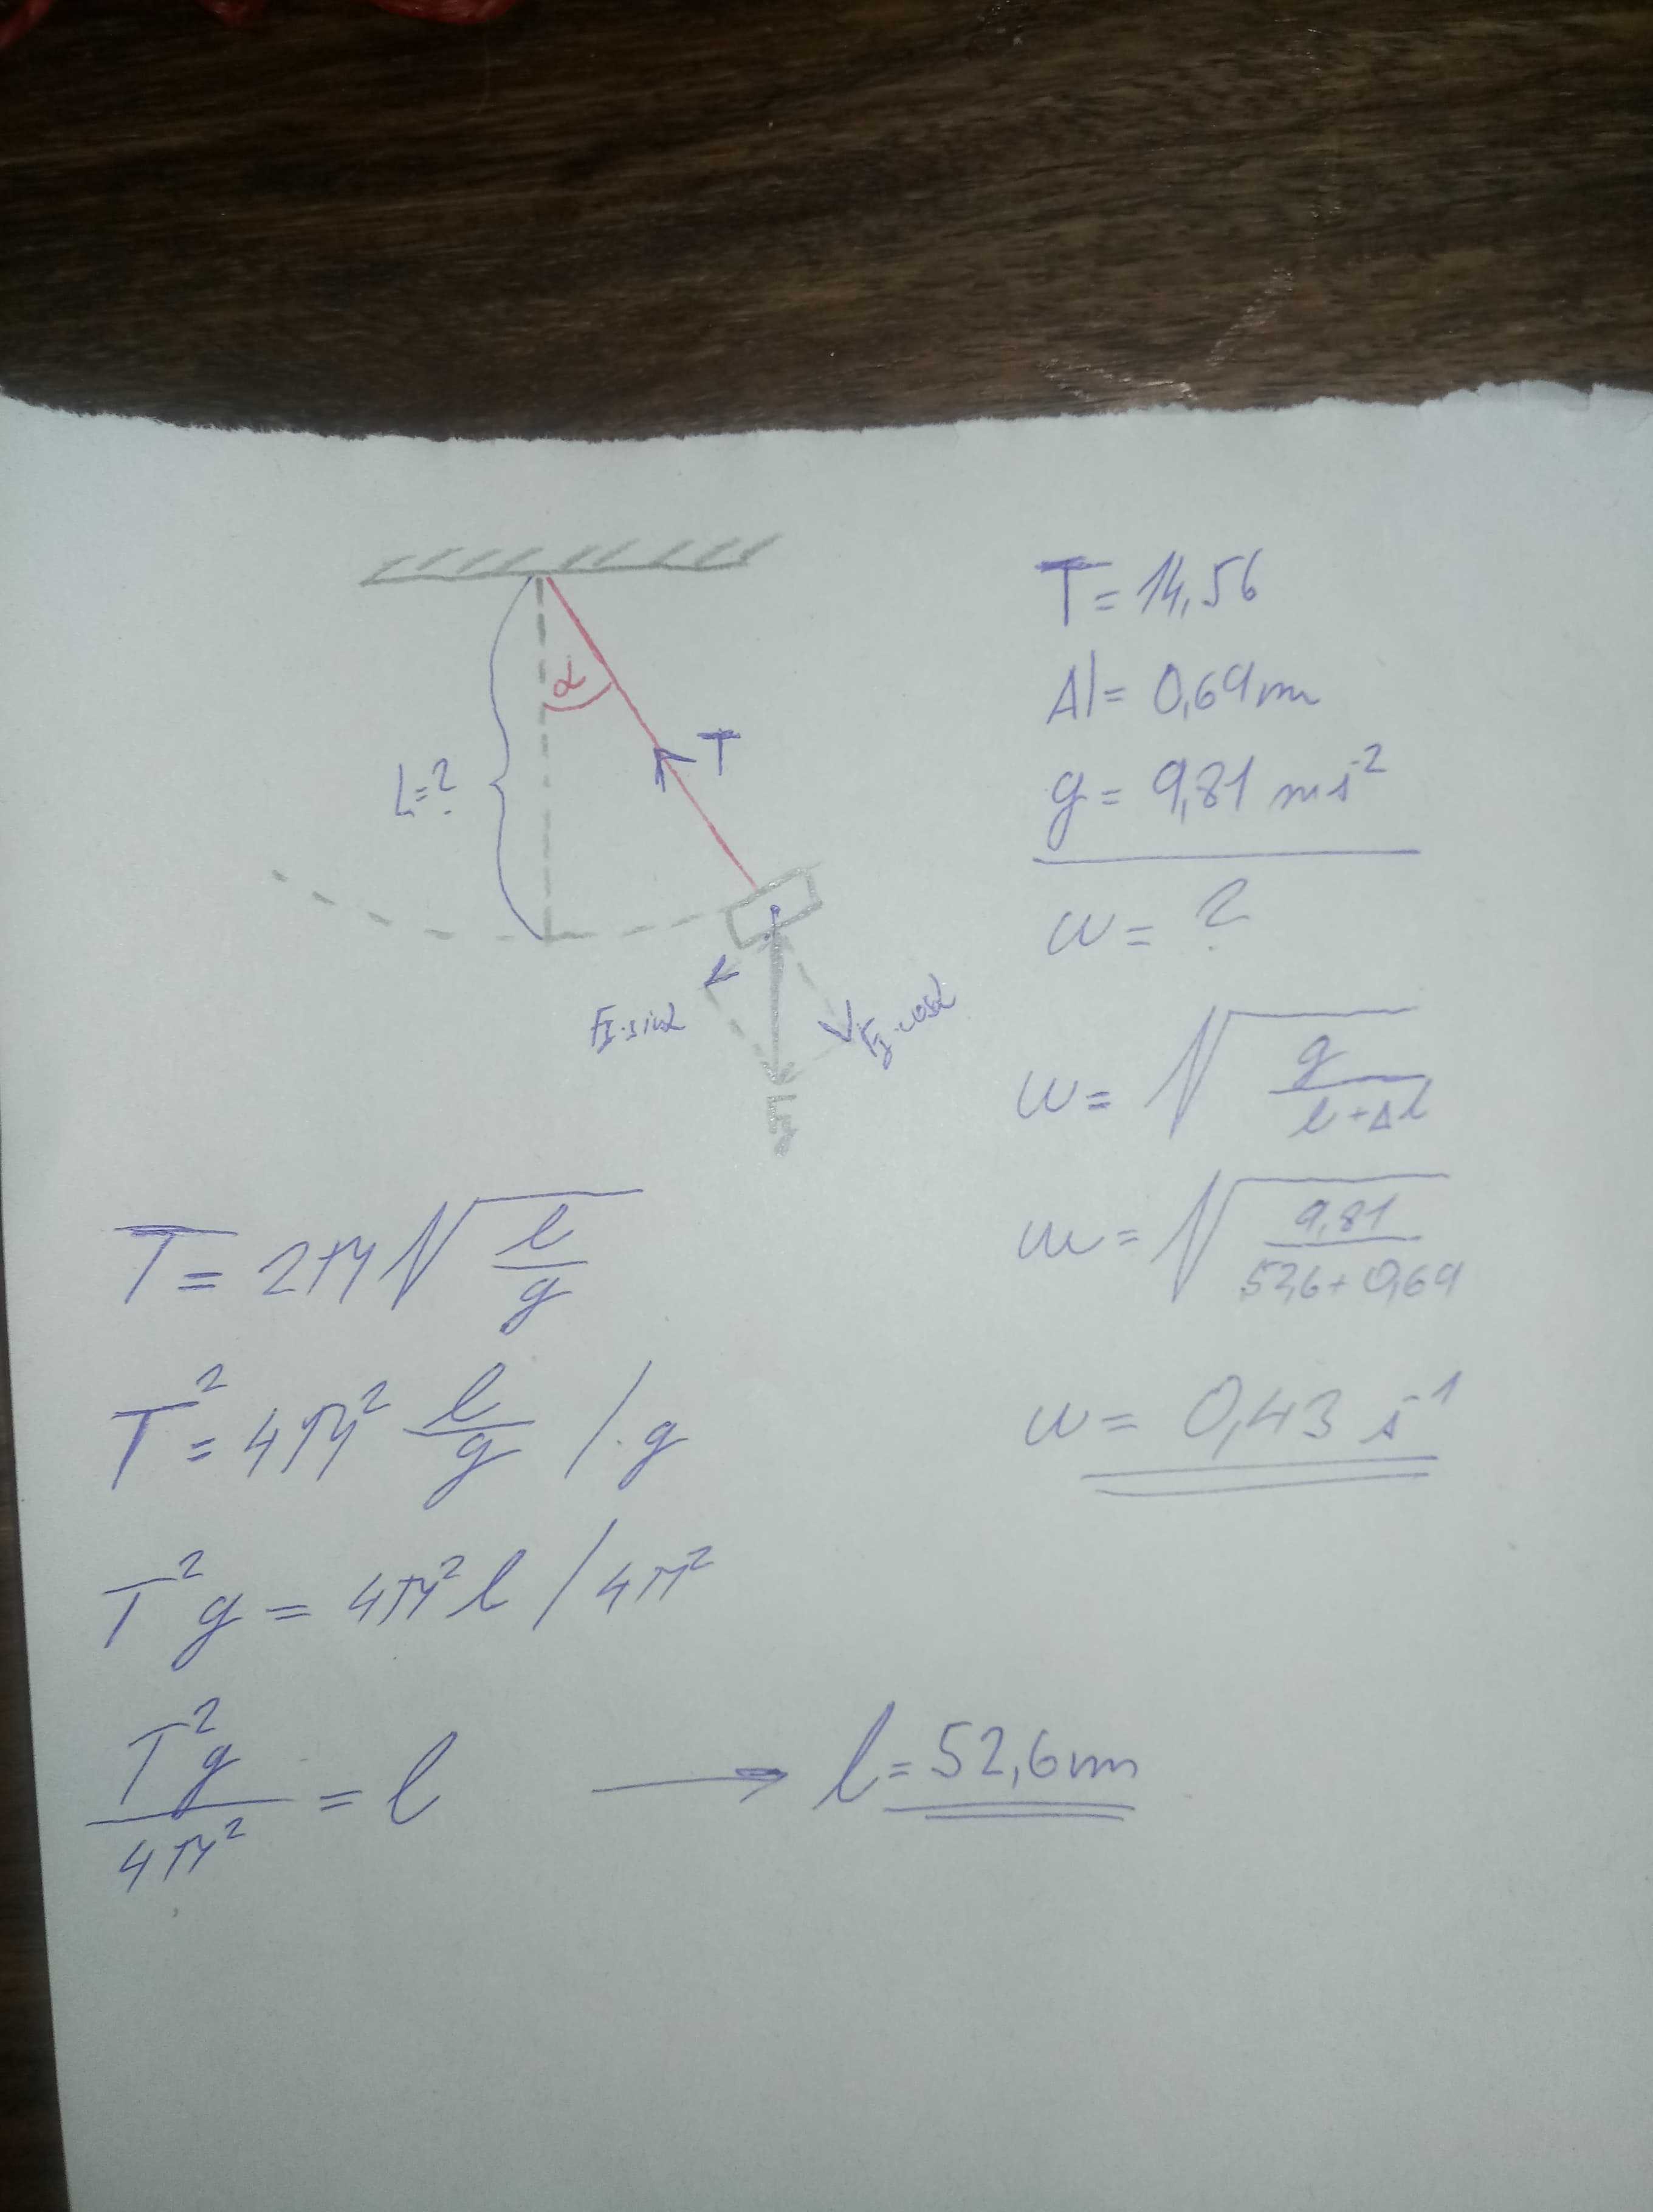 α
T
L=?
Fg·sinα
Fg·cosα
Fg
T = 14,56
Δl = 0,69m
g = 9,81 ms⁻²
ω = ?
ω = √(g/(l+Δl))
ω = √(9,81/(52,6+0,69))
ω = 0,43 s⁻¹
T = 2π√(l/g)
T² = 4π² l/g /·g
T²g = 4π²l /4π²
T²g/4π² = l → l = 52,6m